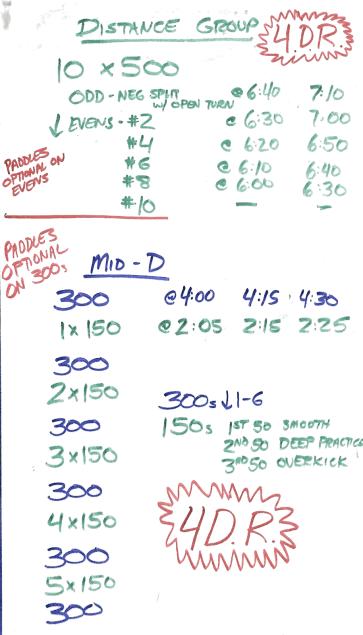 DISTANCE GROUP
4.D.R.
10 x 500
ODD - NEG SPLIT @ 6:40 7:10
W/ OPEN TURN
↓ EVENS - #2 @ 6:30 7:00
#4 @ 6:20 6:50
#6 @ 6:10 6:40
#8 @ 6:00 6:30
#10 — —
PADDLES
OPTIONAL ON
EVENS
PADDLES
OPTIONAL
ON 300s
MID-D
300 @4:00 4:15 4:30
1x150 @2:05 2:15 2:25
300
2x150
300s ↓1-6
300
150s 1ST 50 SMOOTH
2ND 50 DEEP PRACTICE
3RD 50 OVERKICK
3x150
300
4x150
300
5x150
300
4D.R.